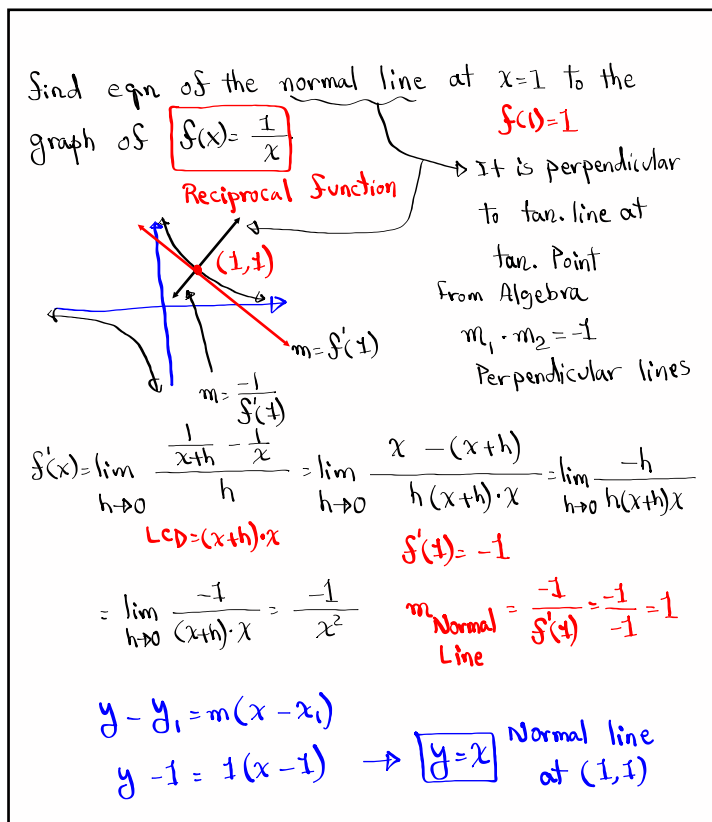 find eqn of the normal line at x=1 to the
graph of f(x)= 1/x
f(1)=1
Reciprocal function
It is perpendicular
to tan. line at
tan. Point
From Algebra
m₁ · m₂ = -1
Perpendicular lines
(1,1)
m=f'(1)
m= -1/f'(1)
f'(x)= lim h→0 (1/(x+h) - 1/x)/h = lim h→0 (x-(x+h))/(h(x+h)·x) = lim h→0 -h/(h(x+h)x)
LCD=(x+h)·x
f'(1)= -1
= lim h→0 -1/((x+h)·x) = -1/x²
m Normal Line = -1/f'(1) = -1/-1 = 1
y - y₁ = m(x - x₁)
y - 1 = 1(x - 1) → y = x Normal line
at (1,1)